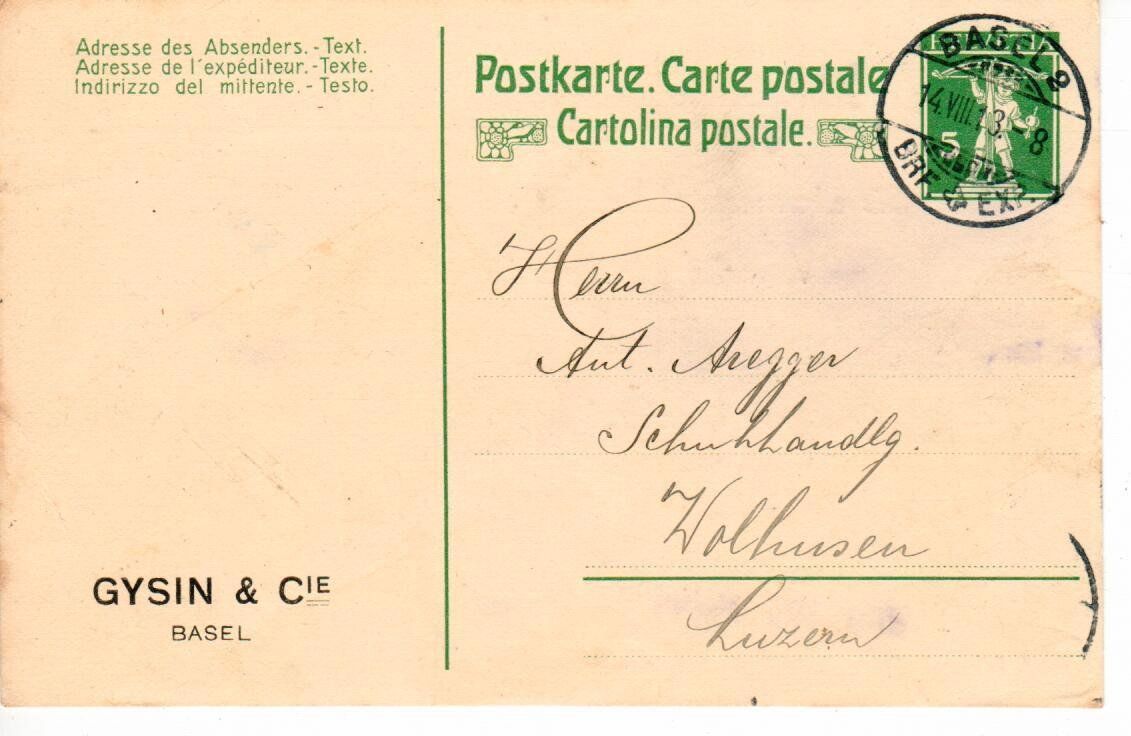 Adresse des Absenders.-Text.
Adresse de l'expéditeur.-Texte.
Indirizzo del mittente.- Testo.
Postkarte. Carte postale
Cartolina postale.
BASEL 2
14.VIII.13.-8
BRF. EXP.
5
Herrn
Ant. Aregger
Schuhhandlg.
Wolhusen
Luzern
GYSIN & CIE
BASEL